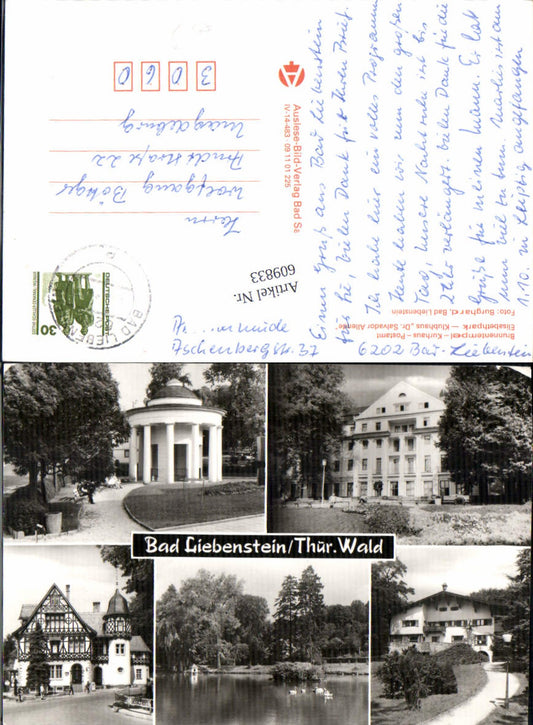 Einen Gruß aus Bad Liebenstein
für Sie, vielen Dank für Ihren Brief.
Ich habe hier ein volles Programm
Heute haben wir nun den großen
Tag, unsere Nachtruhe ist bis
2 Uhr verlängert. Vielen Dank für die
Grüße für meinen Mann. Er hat
nun viel zu tun.
1.10. in Leipzig angefangen
Auslese-Bild-Verlag Bad Sa
IV-14-483 09 11 01 225
Brunnentempel – Kurhaus – Postamt
Elisabethpark – Klubhaus „Dr. Salvador Allende“
Foto: Burghardt, Bad Liebenstein
DEUTSCHE POST
30
BAD LIEBEN
Herrn
Wolfgang Böttger
Arndtstraße 22
Magdeburg
3 0 6 0
Artikel Nr.
609833
6202 Bad-Liebenstein
Bad Liebenstein/Thür. Wald